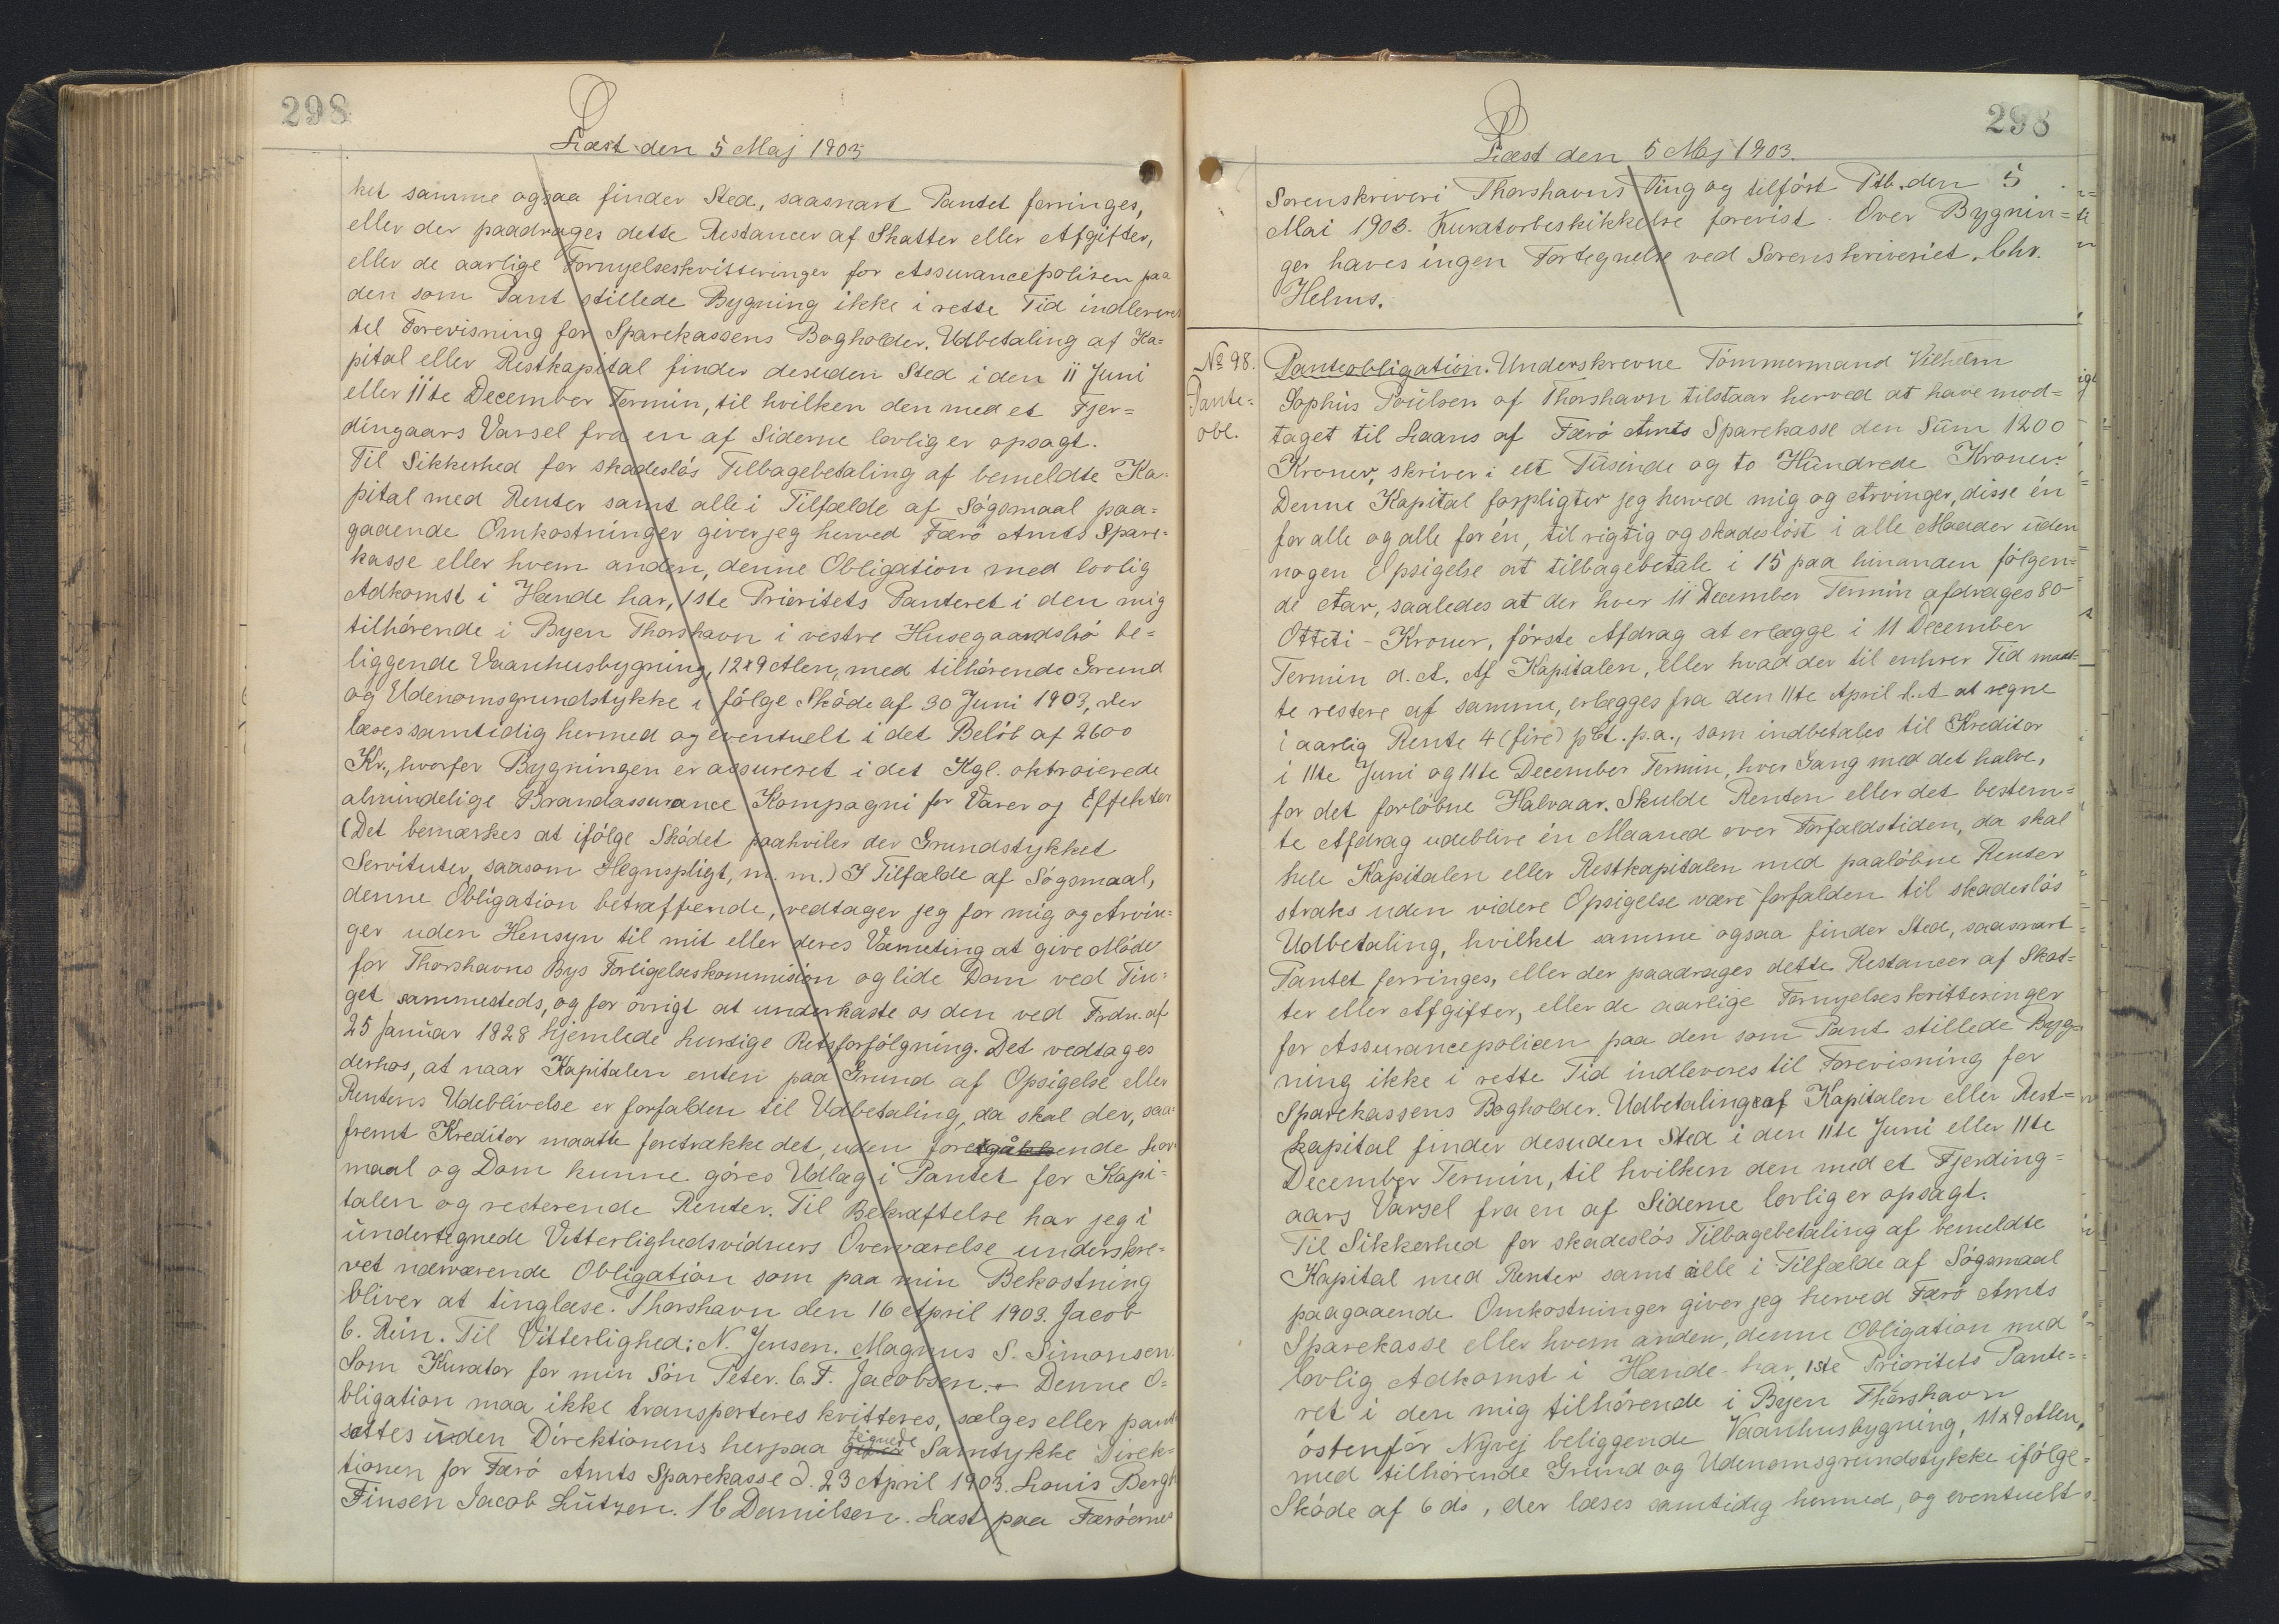 298
Læst den 5 Maj 1903
ket samme ogsaa finder Sted, saasnart Pantet forringes,
eller der paadrages dette Restancer af Skatter eller Afgifter,
eller de aarlige Fornyelseskvitteringer for Assurancepolisen paa
den som Pant stillede Bygning ikke i rette Tid indleveres
til Forevisning for Sparekassens Bogholder. Udbetaling af Ka=
pital eller Restkapital finder desuden Sted i den 11 Juni
eller 11te December Termin, til hvilken den med et Fjer=
dingaars Varsel fra en af Siderne lovlig er opsagt.
Til Sikkerhed for skadesløs Tilbagebetaling af bemeldte Ka-
pital med Renter samt alle i Tilfælde af Søgsmaal paa=
gaaende Omkostninger giver jeg herved Færø Amts Spare=
kasse eller hvem anden, denne Obligation med lovlig
Adkomst i Hænde har, 1ste Prioritets Panteret i den mig
tilhørende i Byen Thorshavn i vestre Husegaardsbø be=
liggende Vaanhusbygning, 12x9 Alen, med tilhørende Grund
og Udenomsgrundstykke i følge Skøde af 30 Juni 1903, der
læses samtidig hermed og eventuelt i det Beløb af 2600
Kr., hvorfor Bygningen er assureret i det Kgl. oktroierede
almindelige Brandassurance Kompagni for Varer og Effekter
(Det bemærkes at ifølge Skødet paahviler der Grundstykket
Servituter, saasom Hegnspligt, m. m.) I Tilfælde af Søgsmaal,
denne Obligation betræffende, vedtager jeg for mig og Arvin=
ger uden Hensyn til mit eller deres Værneting at give Møde
for Thorshavns Bys Forligelseskommision og lide Dom ved Tin=
get sammesteds, og for øvrigt at underkaste os den ved Frdn. af
25 Januar 1828 hjemlede hurtige Retsforfølgning. Det vedtages
derhos, at naar Kapitalen enten paa Grund af Opsigelse eller
Rentens Udeblivelse er forfalden til Udbetaling, da skal der, saa=
fremt Kreditor maatte foretrække det, uden foregående Lov=
maal og Dom kunne gøres Udlæg i Pantet for Kapi=
talen og resterende Renter. Til Bekræftelse har jeg i
undertegnede Vitterlighedsvidners Overværelse underskre=
vet nærværende Obligation som paa min Bekostning
bliver at tinglæse. Thorshavn den 16 April 1903. Jacob
C. Rein. Til Vitterlighed: N. Jensen. Magnus S. Simonsen.
Som Kurator for min Søn Peter. C. F. Jacobsen. - Denne O=
bligation maa ikke transporteres kvitteres, sælges eller pant
sættes uden Direktionens herpaa tegnede Samtykke Direk=
tionen for Færø Amts Sparekasse d. 23 April 1903. Louis Bergh
Finsen Jacob Lützen. H C Danielsen. Læst paa Færøernes
298
Læst den 5 Maj 1903.
Sorenskriveri Thorshavns Ting og tilført Ptb. den 5
Mai 1903. Kuratorbeskikkelse forevist. Over Bygnin=
ger haves ingen Fortegnelse ved Sorenskriveriet. Chr.
Helms.
No 98.
Pante-
obl.
Panteobligation. Underskrevne Tømmermand Vilhelm
Sophus Poulsen af Thorshavn tilstaar herved at have mod=
taget til Laans af Færø Amts Sparekasse den Sum 1200
Kroner, skriver: ett Tusinde og to Hundrede Kroner.
Denne Kapital forpligter jeg herved mig og Arvinger, disse én
for alle og alle for én, til rigtig og skadesløst i alle Maader uden
nogen Opsigelse at tilbagebetale i 15 paa hinanden følgen=
de Aar, saaledes at der hver 11 December Termin afdrages 80-
Otteti - Kroner, første Afdrag at erlægge i 11 December
Termin d. A. Af Kapitalen, eller hvad der til enhver Tid maat=
te restere af samme, erlægges fra den 11te April d. A at regne
i aarlig Rente 4 (fire) pCt. p.a., som indbetales til Kreditor
i 11te Juni og 11te December Termin, hver Gang med det halve,
for det forløbne Halvaar. Skulde Renten eller det bestem=
te Afdrag udeblive én Maaned over Forfaldstiden, da skal
hele Kapitalen eller Restkapitalen med paaløbne Renter
straks uden videre Opsigelse være forfalden til skadesløs
Udbetaling, hvilket samme ogsaa finder Sted, saasnart
Pantet forringes, eller der paadrages dette Restancer af Skat=
ter eller Afgifter, eller de aarlige Fornyelseskvitteringer
for Assurancepolicen paa den som Pant stillede Byg=
ning ikke i rette Tid indleveres til Forevisning for
Sparekassens Bogholder. Udbetaling af Kapitalen eller Rest=
kapital finder desuden Sted i den 11te Juni eller 11te
December Termin, til hvilken den med et Fjerding=
aars Varsel fra en af Siderne lovlig er opsagt.
Til Sikkerhed for skadesløs Tilbagebetaling af bemeldte
Kapital med Renter samt alle i Tilfælde af Søgsmaal
paagaaende Omkostninger giver jeg herved Færø Amts
Sparekasse eller hvem anden, denne Obligation med
lovlig Adkomst i Hænde har, 1ste Prioritets Pante=
ret i den mig tilhørende i Byen Thorshavn
østenfor Nyvej beliggende Vaanhusbygning, 11x9 Alen,
med tilhørende Grund og Udenomsgrundstykke ifølge
Skøde af 6 ds, der læses samtidig hermed, og eventuelt